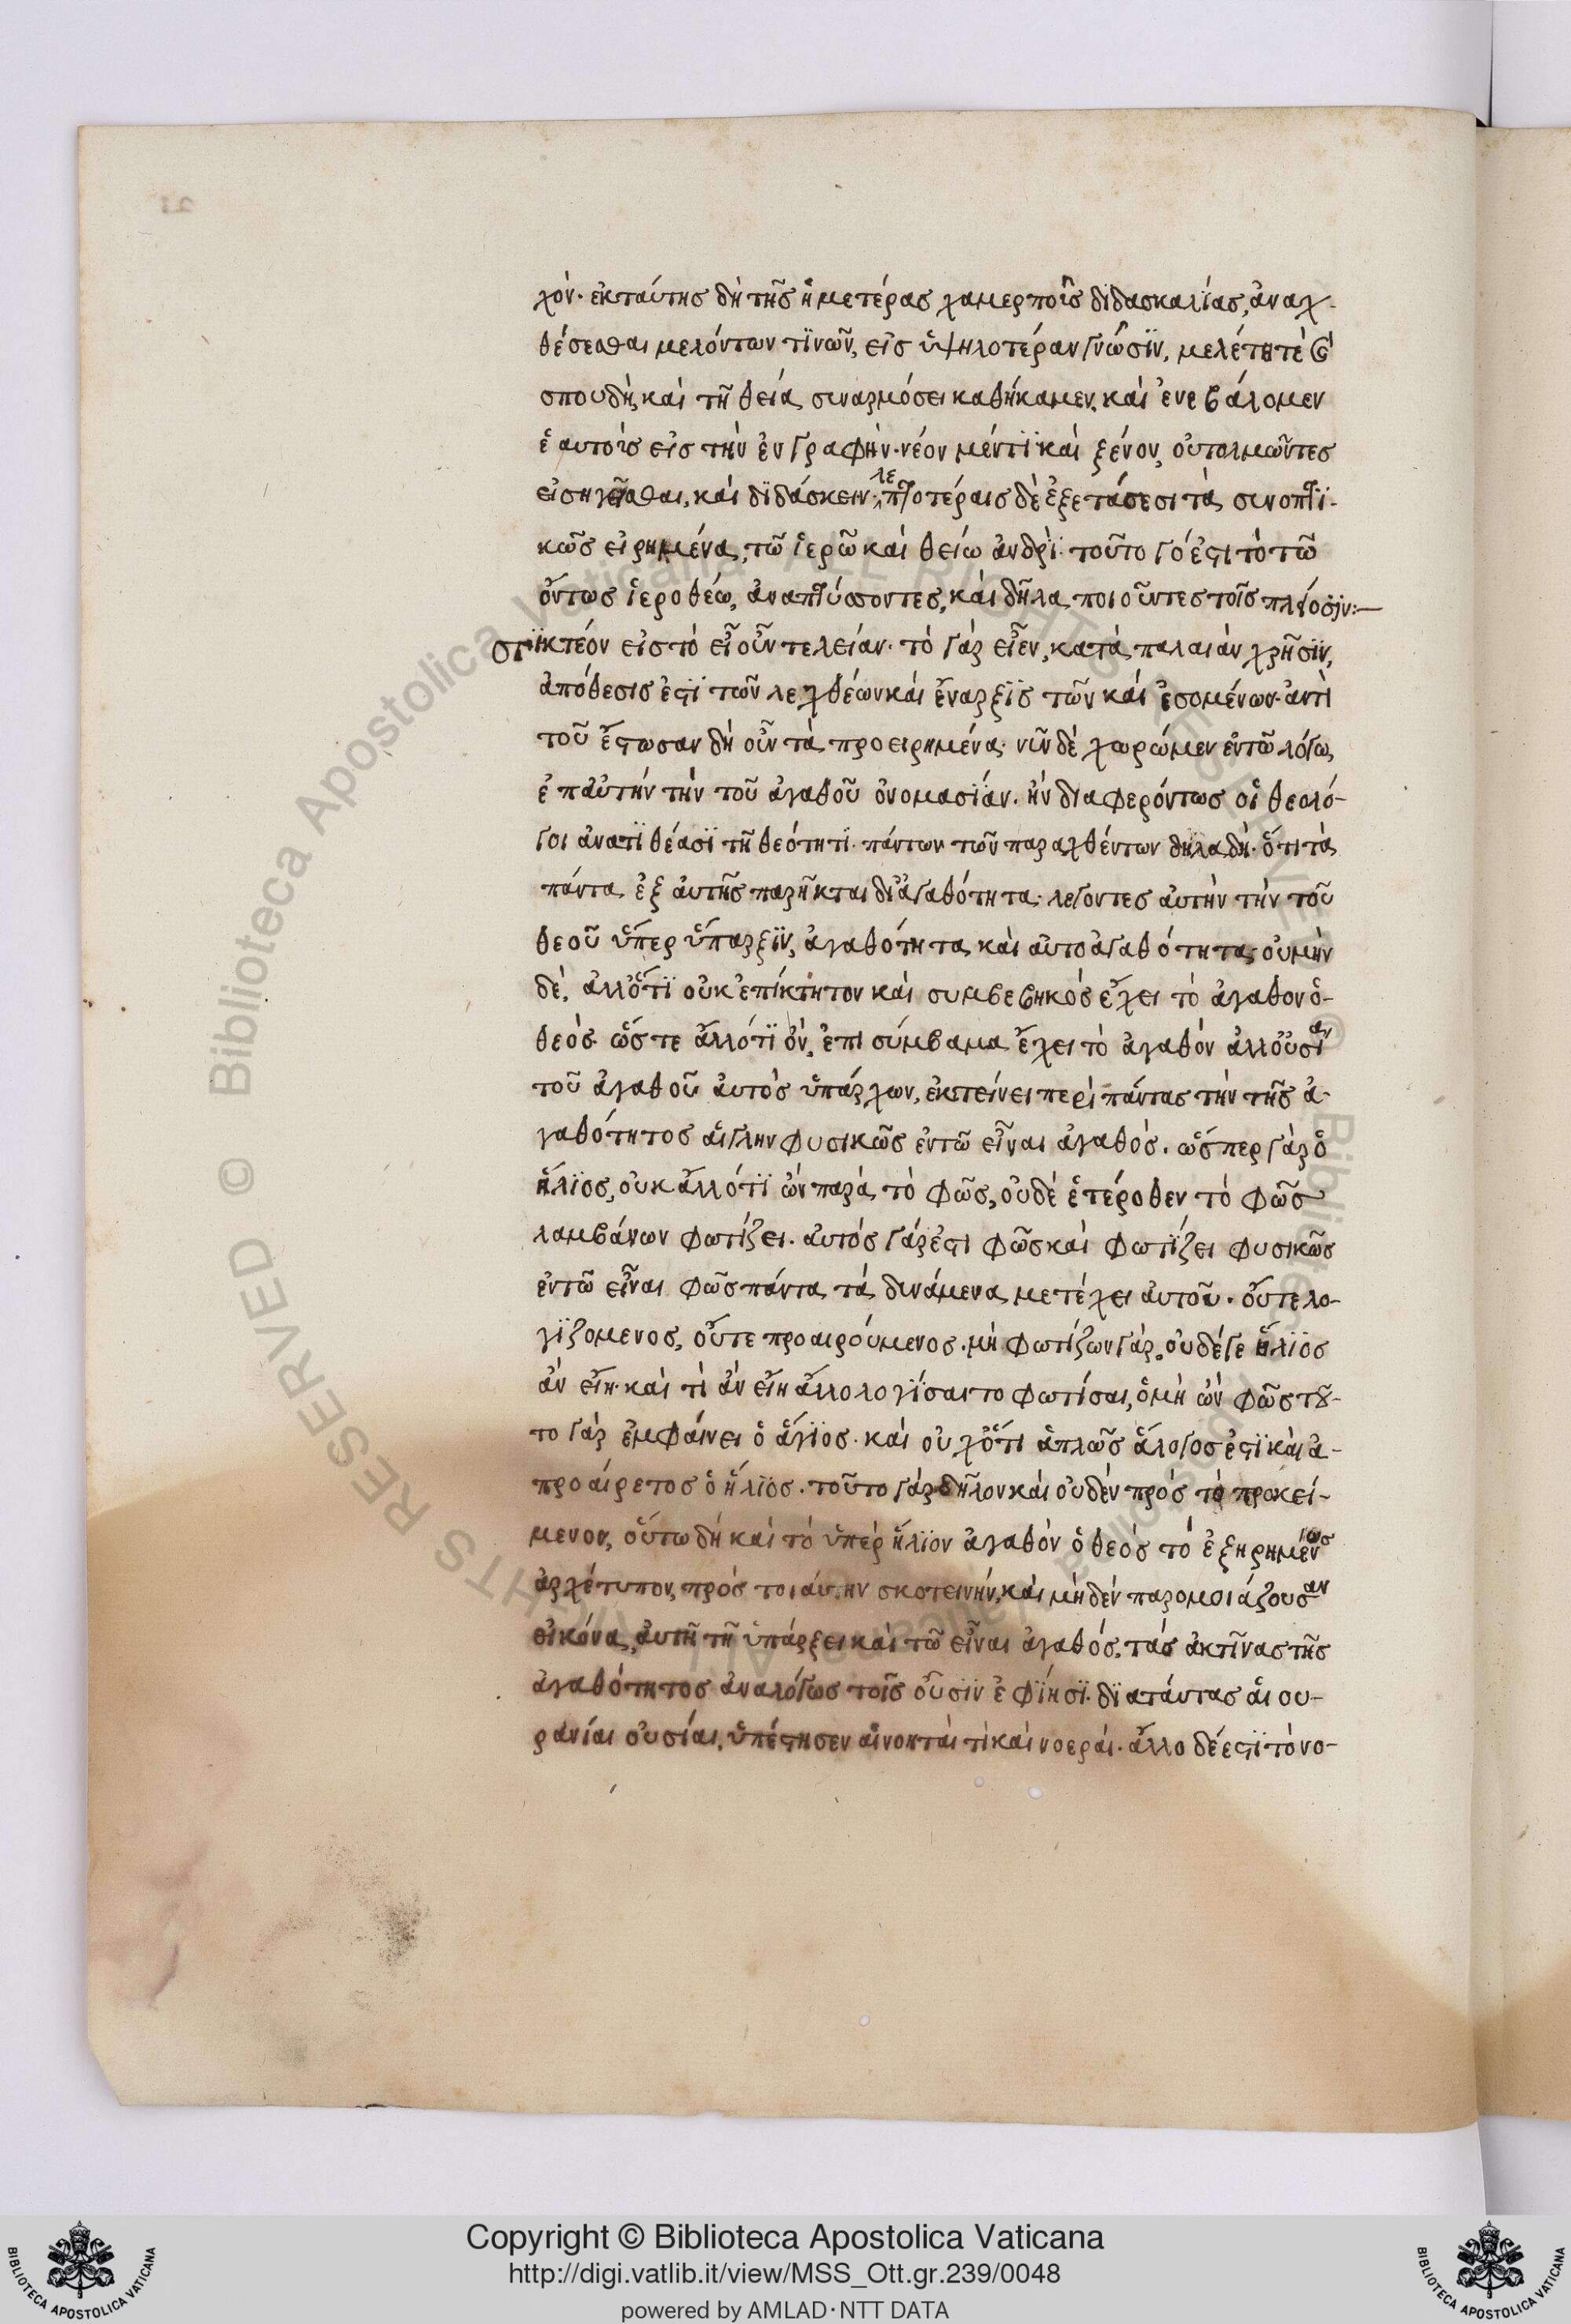 χόν· ἐκταύτης δὴ τῆς ἡμετέρας χαμερποῖς διδασκαλΐας, ἀναχ-
θέσεσθαι μελόντων τϊνῶν, εἰς ὑψηλοτέραν γνῶσϊν, μελέτητέ ϗ
σπουδὴ, καὶ τῆ θεία συναρμόσει καθήκαμεν, καὶ ἐνεβάλομεν
ἑαυτοὶς εἰς τὴν ἐνγραφὴν· νέον μέντϊ καὶ ξένον, οὐτολμῶντες
εἰσηγεῖσθαι, καὶ δϊδάσκειν· λεπτοτέραις δὲ ἐξετάσεσι τὰ συνοπτϊ-
κῶς εἰρημένα, τῶ ἱερῶ καὶ θείω ἀνδρὶ· τοῦτο γό ἐστι τὸ τῶ
ὄντως ἱεροθέω, ἀναπτύσσοντες, καὶ δῆλα ποιοῦντες τοῖς πλείοσϊν:—
στϊκτέον εἰς τὸ εἶ οὖν τελείαν· τὸ γὰρ εἶεν, κατὰ παλαιὰν χρῆσϊν,
ἀπόθεσις ἐστϊ τῶν λεχθέων καὶ ἔναρξϊς τῶν καὶ ἐσομένων· ἀντὶ
τοῦ ἔστωσαν δὴ οὖν τὰ προειρημένα· νῦν δὲ χωρώμεν ἐντῶ λόγω,
ἐπαὐτήν τὴν τοῦ ἀγαθοῦ ὀνομασΐαν· ἠν διαφερόντως οἱ θεολό-
γοι ἀνατϊθέασϊ τῆ θεότητϊ· πάντων τῶν παραχθέντων δηλαδὴ· ὅτι τὰ
πάντα ἐξ ἀυτῆς παρῆκται δι᾽ἀγαθότητα· λεγοντες αυτὴν τὴν τοῦ
θεοῦ ὕπερ ὕπαρξϊν, ἀγαθότητα καὶ αὐτοἀγαθότητα· οὐμὴν
δὲ, ἀλλ᾽ὅτϊ οὐκ᾽ἐπίκτητον καὶ συμβεβηκὸς ἔχει τὸ ἀγαθον ὁ-
θεὸς· ὥστε ἄλλότϊ ὀν, ἐπι σύμβαμα ἔχει τὸ ἀγαθόν ἀλλ᾽οὐσίαν
τοῦ ἀγαθοῦ ἀυτὸς ὑπάρχων, ἐκτείνει περὶ πάντας τὴν τῆς ἀ-
γαθότητος αἴγλην φυσικῶς ἐντῶ εἶναι ἀγαθός· ὥσπερ γὰρ ὁ
ἥλϊος, οὐκ ἄλλότϊ ὠν παρὰ τὸ φῶς, οὐδὲ ἑτέροθεν τὸ φῶς
λαμβάνων φωτίζει· αὐτός γάρ ἐστι φῶς καὶ φωτΐζει φυσικῶς
ἐντῶ εἶναι φῶς πάντα τὰ δυνάμενα μετέχει ἀυτοῦ· οὔτε λο-
γϊζομενος, οὔτε προαιρούμενος· μὴ φωτίζων γὰρ, οὐδέγε ἥλϊος
ἀν εἴη· καὶ τὶ ἀν εἴη ἄλλο λογΐσαι το φωτίσαι, ὁ μὴ ὠν φῶς τοῦ-
το γὰρ ἐμφαίνει ὁ ἅγϊος· καὶ οὐχ᾽ὅτι ἁπλῶς ἄλογος ἐστϊ καὶ ἀ-
προαίρετος ὁ ἥλϊος· τοῦτο γὰρ δῆλον καὶ οὐδὲν πρὸς τὸ προκεί-
μενον, οὕτω δὴ καὶ τὸ ὑπὲρ ἥλϊον ἀγαθὸν ὁ θεὸς τὸ ἐξηρημένως
ἀρχέτυπον, πρὸς τοιάυτην σκοτεινήν, καὶ μὴδέν παρομοιάζουσαν
εἰκόνα, ἀυτῆ τῆ ὑπάρξει καὶ τῶ εἶναι ἀγαθός, τὰς ἀκτῖνας τῆς
ἀγαθότητος ἀναλόγως τοῖς οὖσϊν ἐφϊησϊ· δϊ αταύτας ἁι ου-
ράνίαι οὐσίαι, ὑπέστησεν αἱ νοηταί τὶ καὶ νοεραί· ἄλλο δέ ἐστϊ τὸ νο-
Copyright © Biblioteca Apostolica Vaticana
http://digi.vatlib.it/view/MSS_Ott.gr.239/0048
powered by AMLAD·NTT DATA